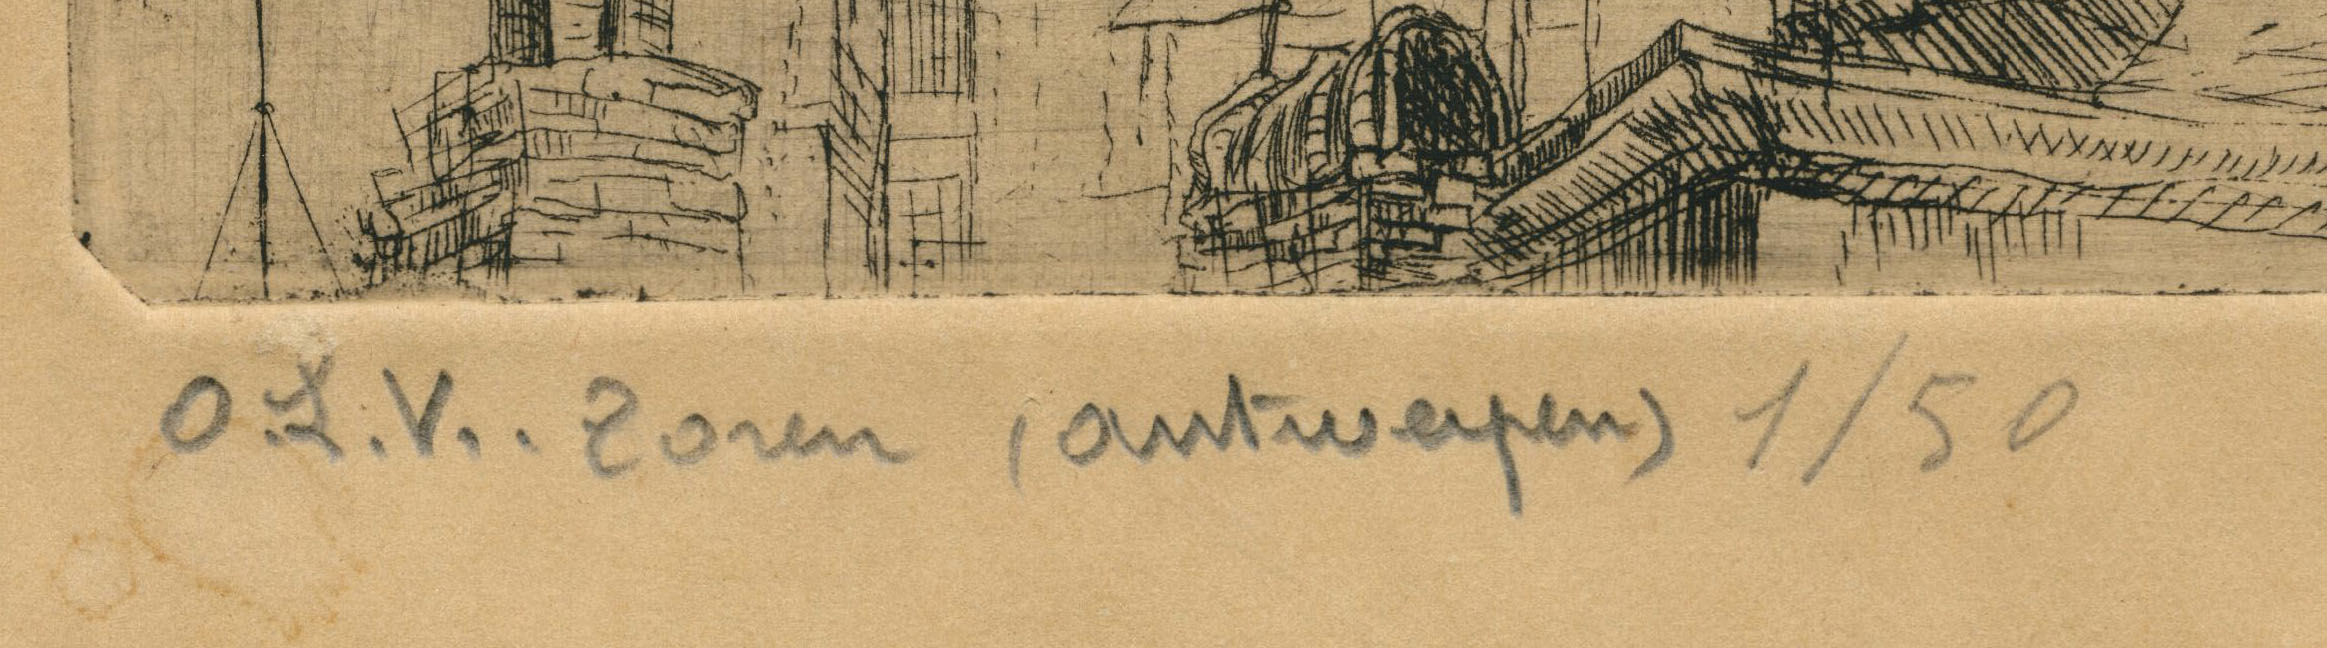 O.L.V.. Toren (Antwerpen) 1/50